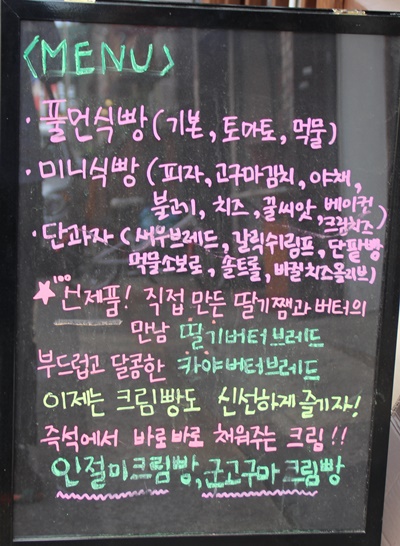 <MENU>
· 풀먼식빵 (기본, 토마토, 먹물)
· 미니식빵 (피자, 고구마김치, 야채,
불고기, 치즈, 꿀씨앗, 베이컨,
크림치즈)
· 단과자 (새우브레드, 갈릭쉬림프, 단팥빵
먹물소보로, 솔트롤, 바퀄치즈올리브)
★100 신제품! 직접 만든 딸기쨈과 버터의
만남 딸기버터브레드
부드럽고 달콤한 카야버터브레드
이제는 크림빵도 신선하게 즐기자!
즉석에서 바로바로 채워주는 크림!!
인절미크림빵, 군고구마 크림빵